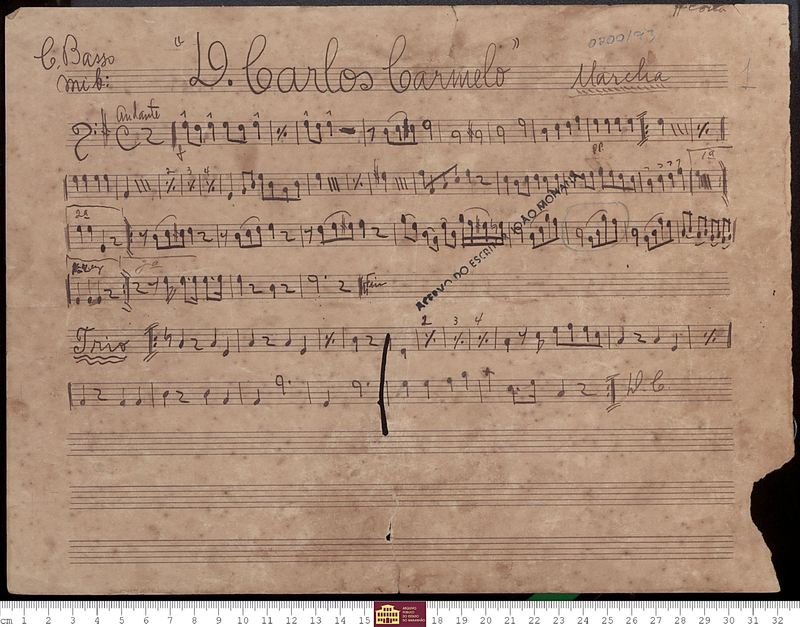 C. Basso
mib:
"D. Carlos Carmelo"
Marcha
0200/93
1
Andante
C 2
f
pp.
2 3 4
1ª
2ª
Fim
ACERVO DO ESCRITOR JOÃO MOHANA
Trio
2 3 4
D. C
cm 1 2 3 4 5 6 7 8 9 10 11 12 13 14 15 18 19 20 21 22 23 24 25 26 27 28 29 30 31 32
ARQUIVO
PÚBLICO
DO ESTADO
DO MARANHÃO